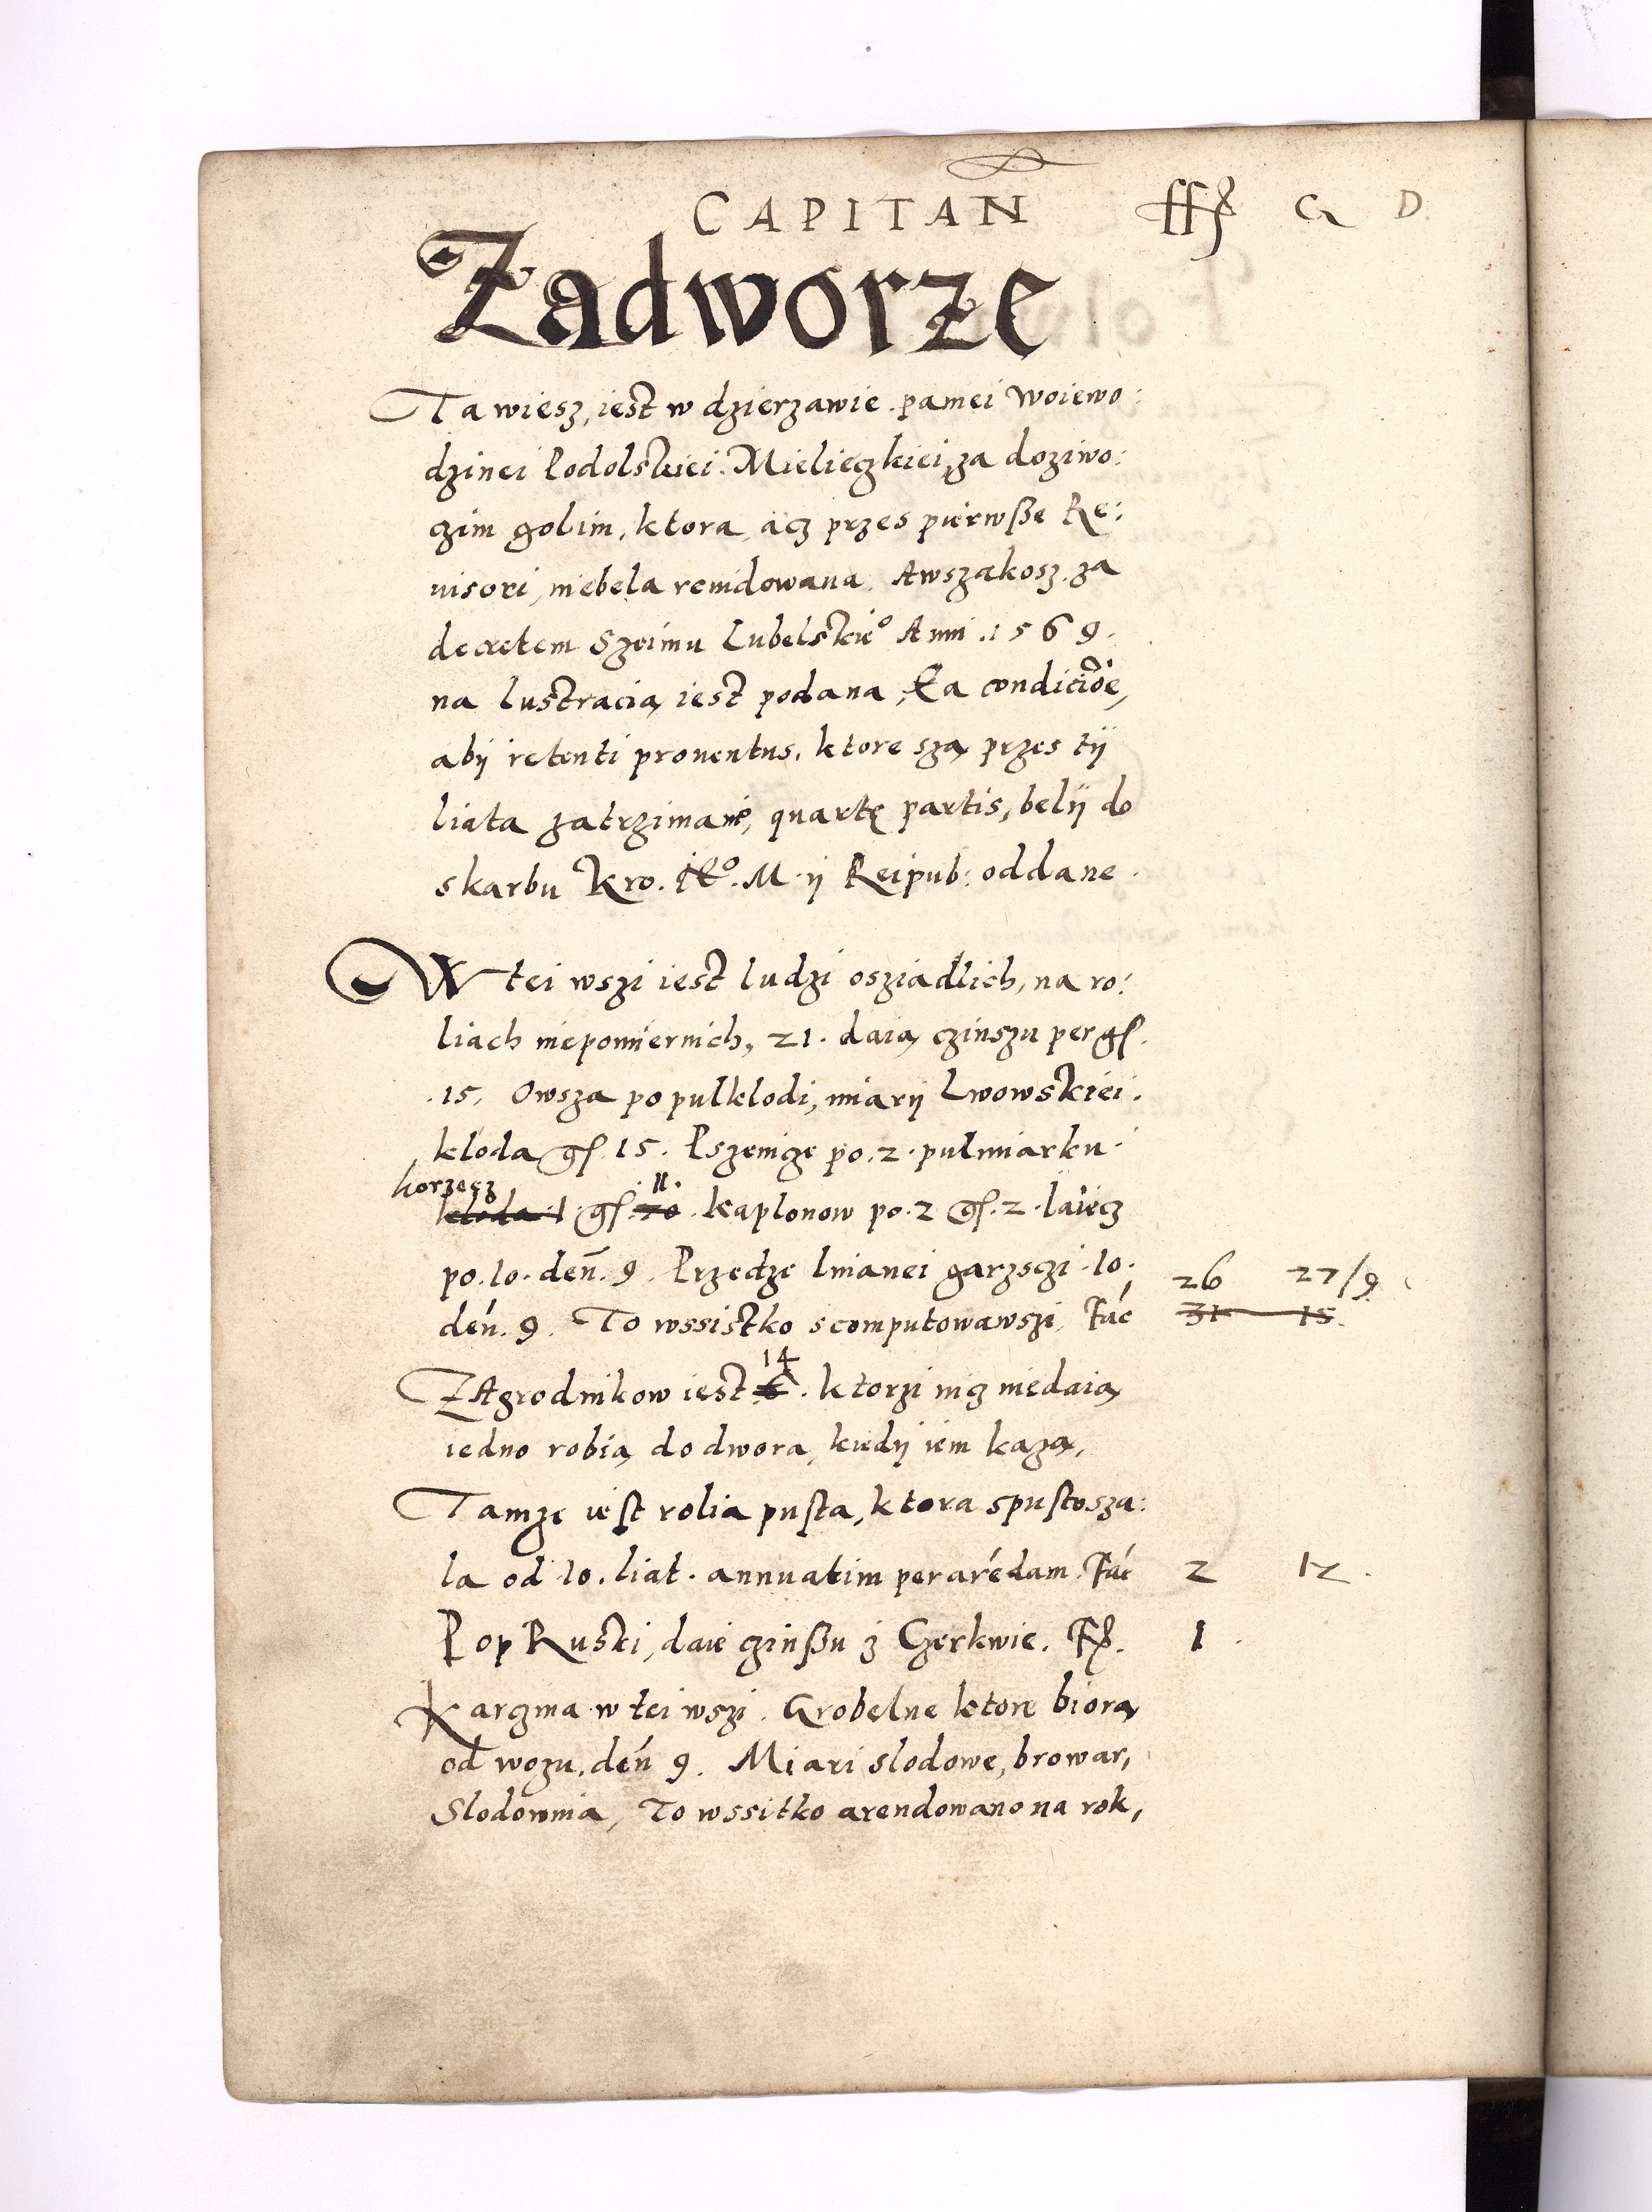 CAPITAN̄ ff G D
Zadworze
Ta wiesz, iest w dzierzawie paniei Woiewo:
dzinei Podolskiei Mieliezkiei, za doziwo:
czim golim, ktora, acz przes pierwsße Re:
uisori, niebela reuidowana. Awszakosz. za
decretem Szeimu Lubelskieº Anni .1569.
na lustracią iest podana, Ea conditiōe,
abÿ retenti prouentus, ktore szą przes tÿ
liata zatrzimane, quartę partis, belÿ do
skarbu Kro. Kº. M. ÿ Reipub: oddane.
W tei wszi iest ludzi osziadlich, na ro:
liach niepomiernich, 21. daią czinszu per gſ.
.15. Owsza po pulklodi, miarÿ Lwowskiei.
kloda gſ. 15. Pszenicze po. 2. pulmiarku.
korzesz .11.
kloda 1 gſ. 20. kaplonow po. 2 gſ. 2. laiecz
po. 10. den̄. 9. Przedze lnianei garzsczi .10. 26 27/9
deń. 9. To wssistko scomputowawszi, Fać 31 15.
14
ZAgrodnikow iest 6. ktorzi nicz niedaią
iedno robią do dwora, kiedÿ iem każą,
Tamze ieſt rolia puſta, ktora spuſtosza:
la od 10. liat. annuatim per arédam. Fać 2 12.
Pop Ruski, daie czinßu z Czerkwie. F. 1.
Karczma w tei wszi. Grobelne ktore biorą
od wozu. deń 9. Miari slodowe, browar,
Slodownia, To wssitko arendowano na rok,